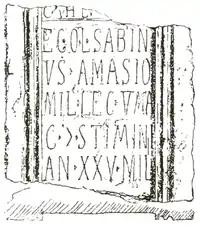 C · HE
EGO L SABIN
VS · AMASIO
MIL · LEG · V MA
C · Ɔ · STIMINI
AN · XXV · MII